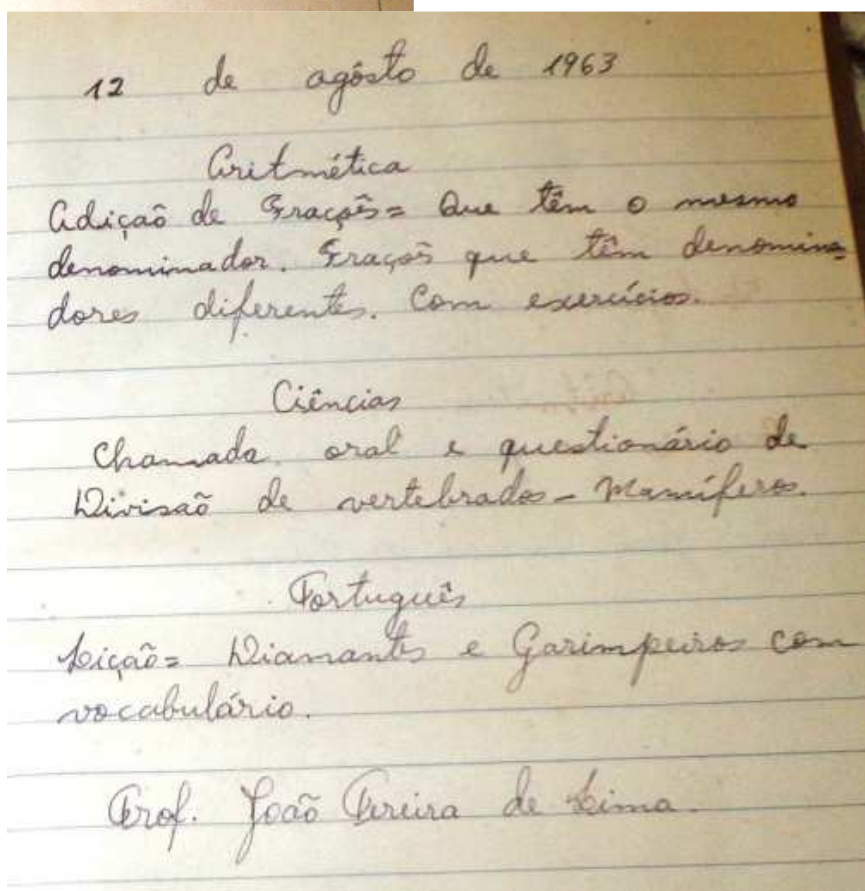 12 de agôsto de 1963
Aritmética
Adição de Frações= Que têm o mesmo
denominador. Frações que têm denomina-
dores diferentes. Com exercícios.
Ciências
Chamada oral e questionário de
Divisão de vertebrados - Mamíferos.
Português
Lição= Diamantes e Garimpeiros com
vocabulário.
Prof. João Pereira de Lima.